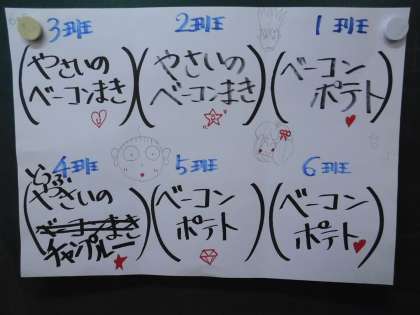 3班
やさいの
ベーコンまき
2班
やさいの
ベーコンまき
1班
ベーコン
ポテト
4班
とうふ
やさいの
ベーコンまき
チャンプルー
5班
ベーコン
ポテト
6班
ベーコン
ポテト